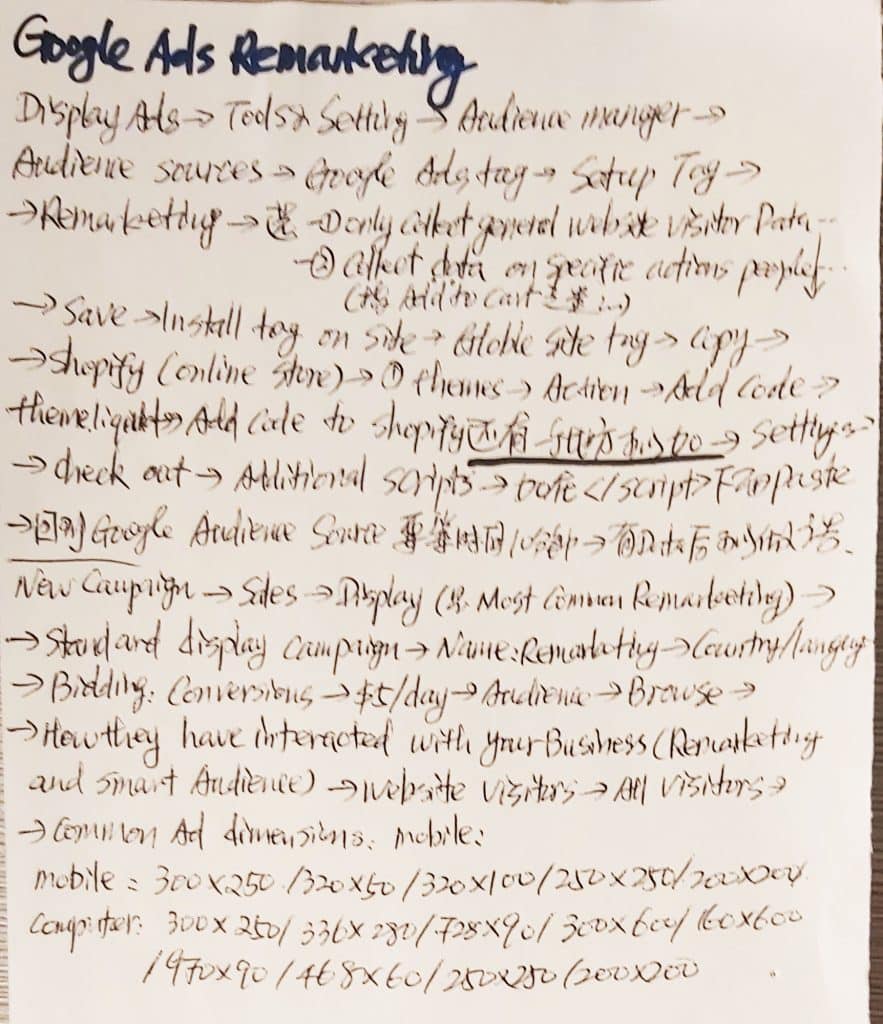 Google Ads Remarketing
Display Ads → Tools & Setting → Audience manager →
Audience sources → Google Ads tag → Setup Tag →
→ Remarketing → 选 → ① only collect general website visitor Data...
→ ② Collect data on specific actions people...
Add to Cart
→ Save → Install tag on site → site tag → Copy →
→ Shopify (online store) → ① themes → Action → Add code →
theme.liquid → Add code to shopify 还有一个地方 → Settings →
→ check out → Additional scripts → </script> paste
→ 回到 Google Audience Source 要等时间 →
New Campaign → Sales → Display ( Most Common Remarketing) →
→ Standard display campaign → Name: Remarketing → Country/language
→ Bidding: Conversions → $5/day → Audience → Browse →
→ How they have interacted with your Business (Remarketing
and smart Audience) → website visitors → All visitors →
→ Common Ad dimensions: mobile:
mobile: 300x250 /320x50 /320x100 /250x250/ 200x200
Computer: 300x250/ 336x280/728x90/ 300x600/ 160x600
/ 970x90 / 468x60 / 250x250 /200x200